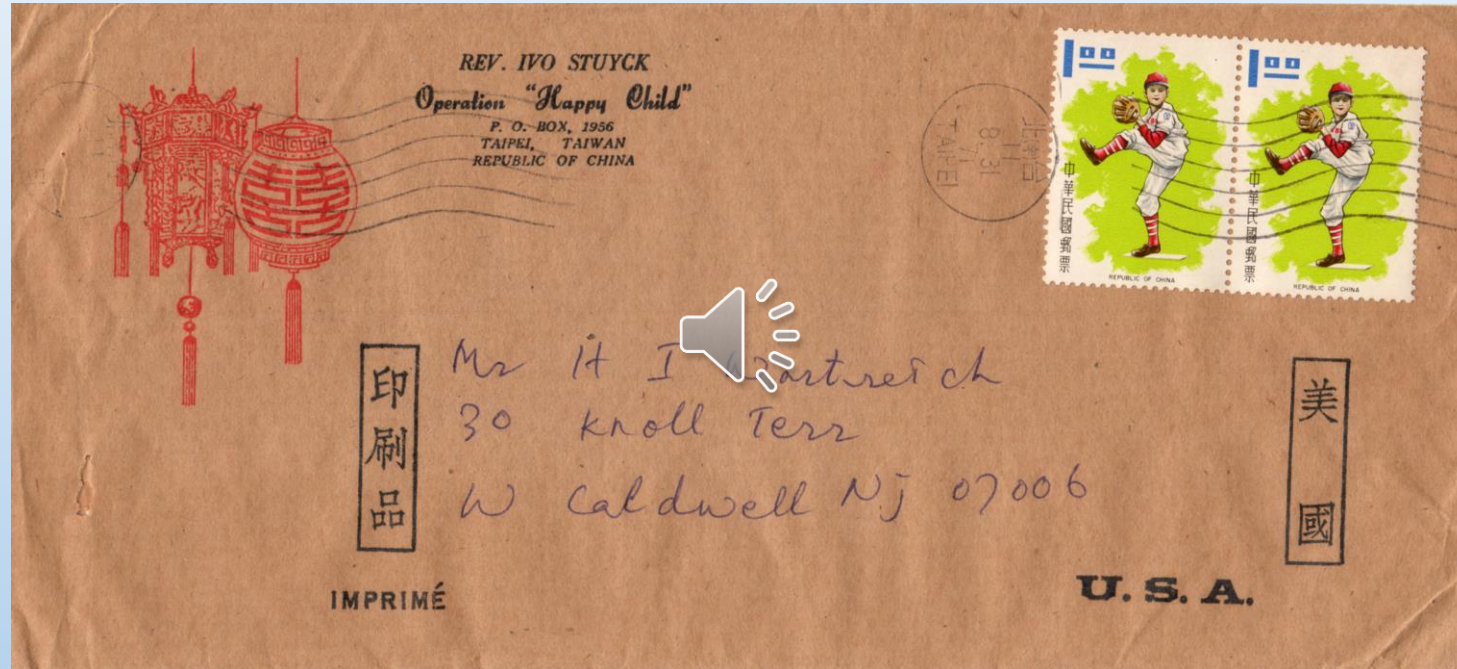 REV. IVO STUYCK
Operation "Happy Child"
P. O. BOX, 1956
TAIPEI, TAIWAN
REPUBLIC OF CHINA
8. 31
TAIPEI
1.00
中華民國郵票
REPUBLIC OF CHINA
1.00
中華民國郵票
REPUBLIC OF CHINA
印刷品
Mr H I
30 Knoll Terr
W Caldwell NJ 07006
美國
IMPRIMÉ
U. S. A.